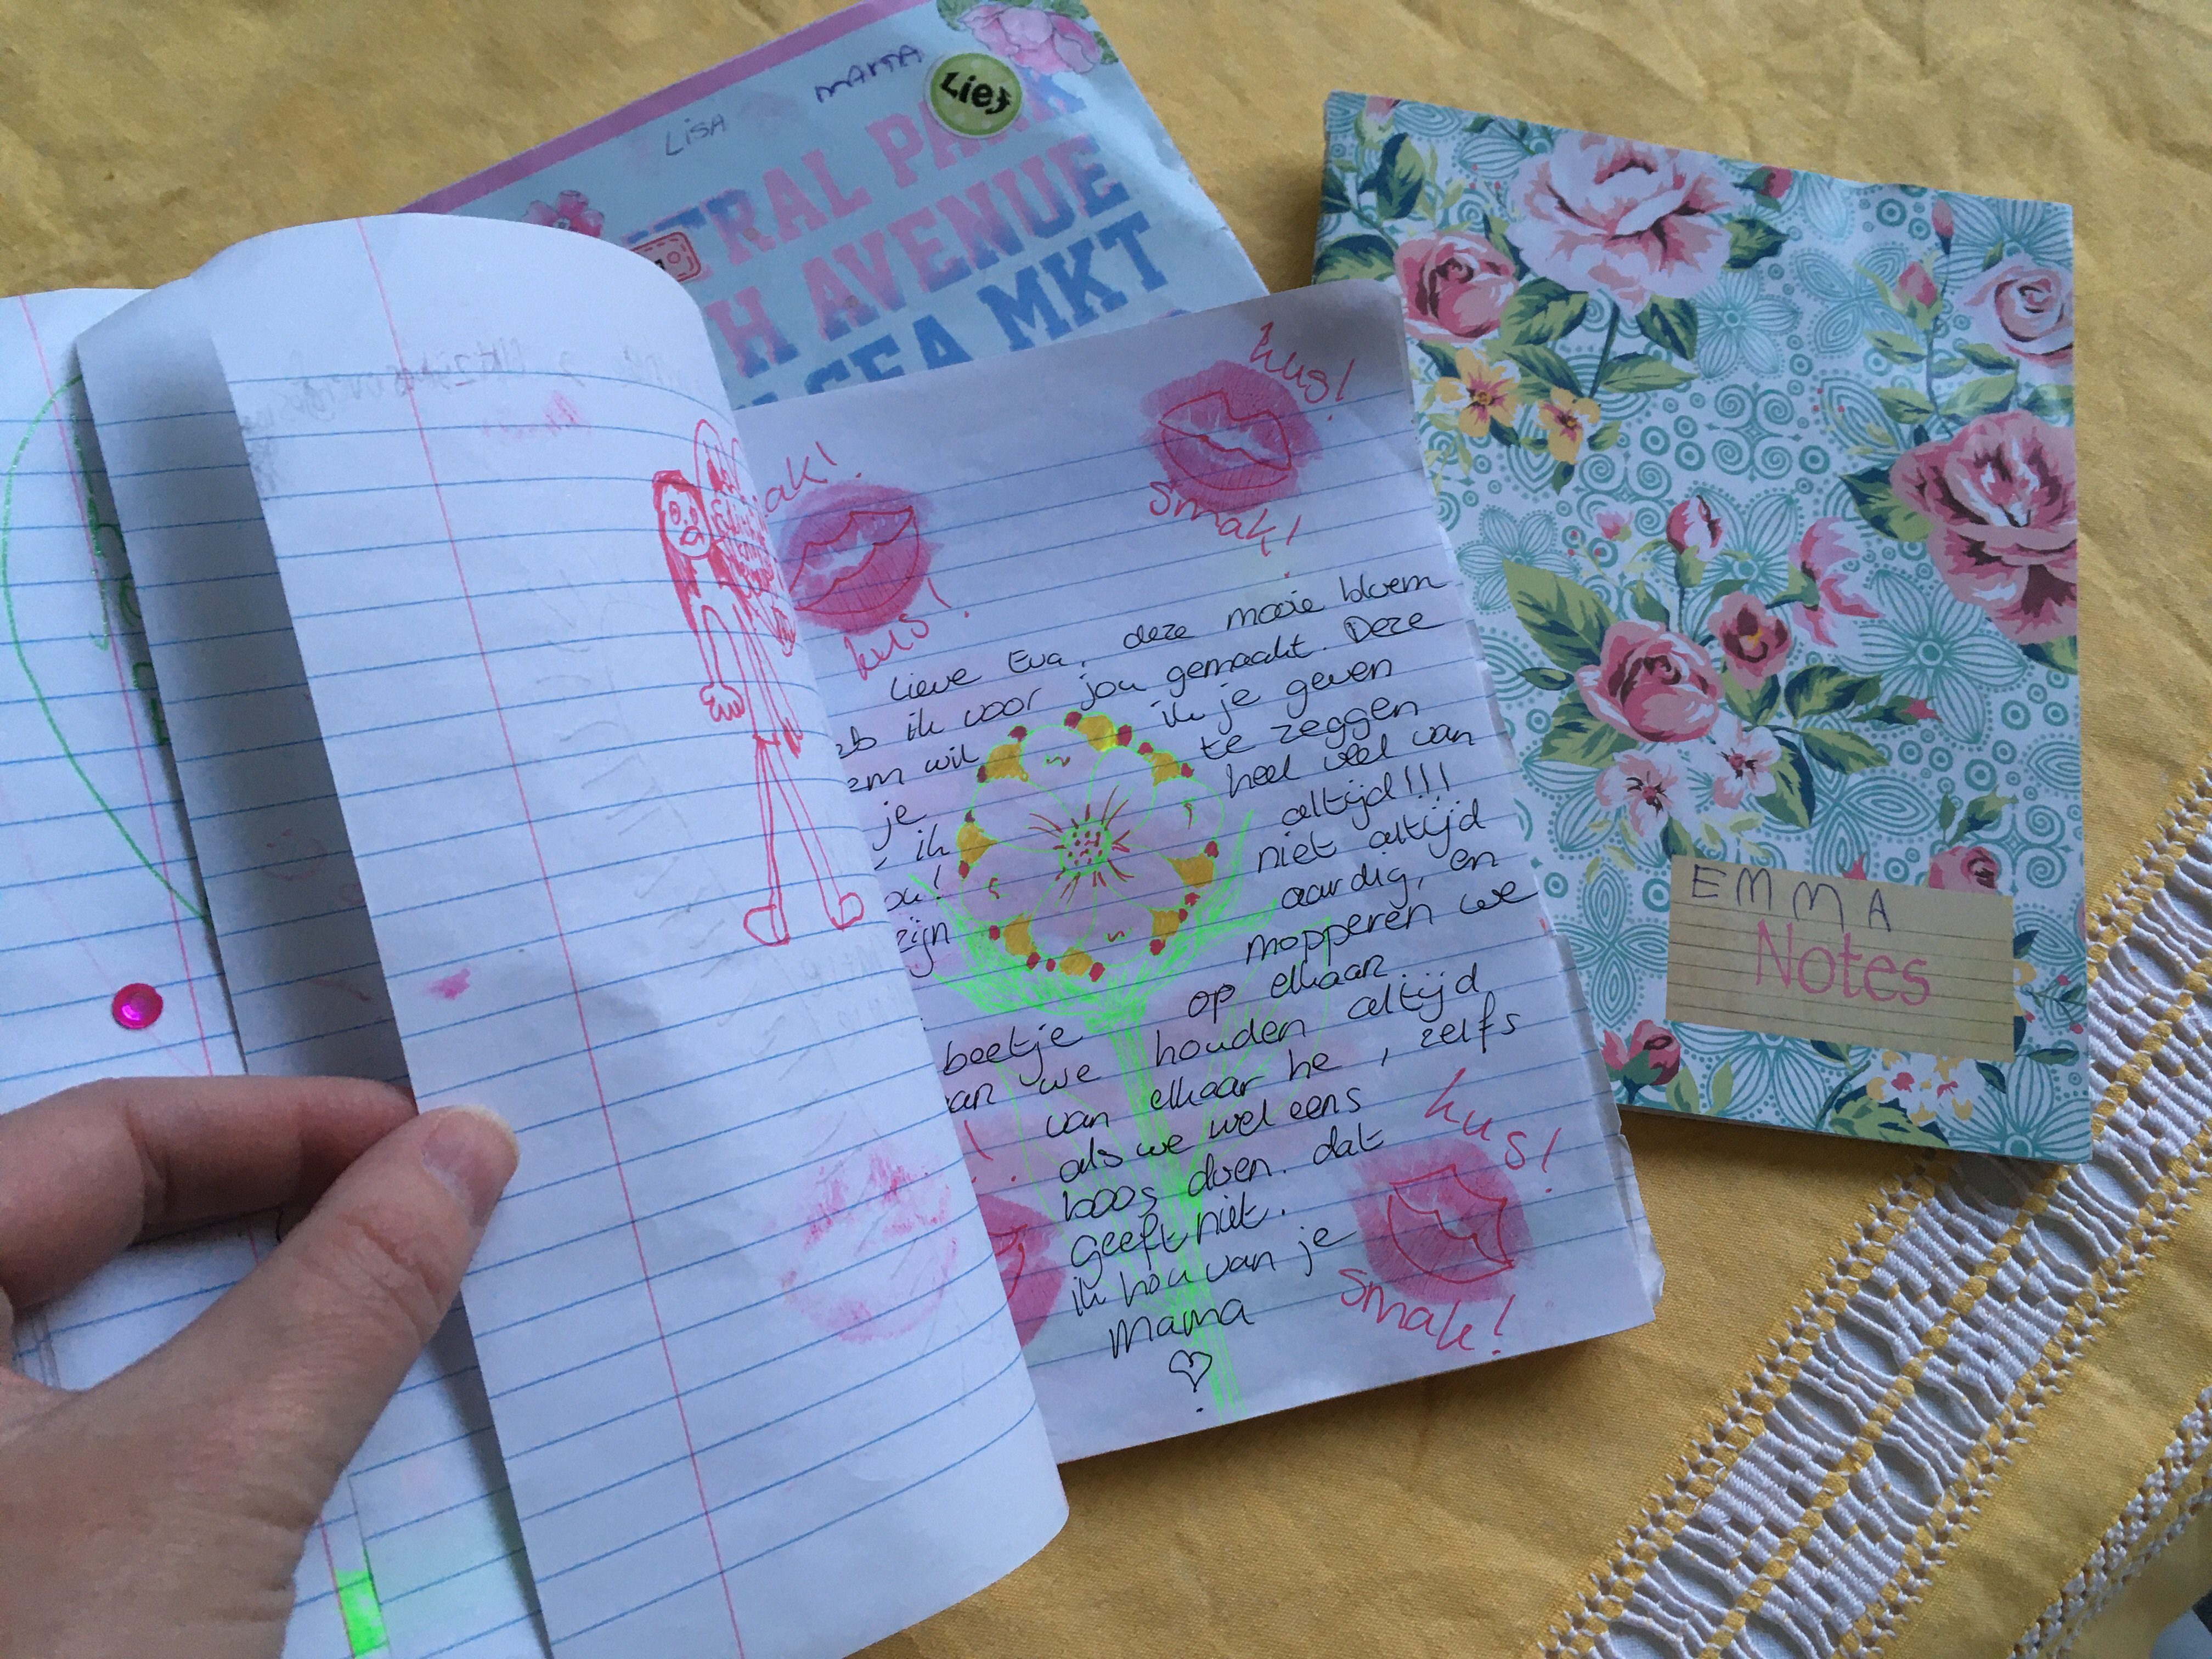 MARTA
Lief
LISA
AVENUE
MKT
kus!
smak!
kus!
Lieve Eva, deze mooie bloem
ik voor jou gemaakt. Deze
wil ik je geven
je te zeggen
ik heel veel van
altijd!!!
zijn niet altijd
aardig, en
mopperen we
beetje op elkaar
we houden altijd
van elkaar he, zelfs
als we wel eens
boos doen. dat
geeft niet.
ik hou van je
Mama
kus!
smak!
EMMA
Notes